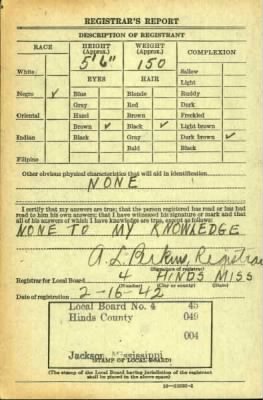 REGISTRAR'S REPORT
DESCRIPTION OF REGISTRANT
RACE HEIGHT (Approx.) WEIGHT (Approx.) COMPLEXION
5'6" 150
White Sallow
EYES HAIR Light
Negro ✓ Blue Blonde Ruddy
Gray Red Dark
Oriental Hazel Brown Freckled
Brown ✓ Black ✓ Light brown
Indian Black Gray Dark brown ✓
Bald Black
Filipino
Other obvious physical characteristics that will aid in identification
NONE
I certify that my answers are true; that the person registered has read or has had
read to him his own answers; that I have witnessed his signature or mark and that
all of his answers of which I have knowledge are true, except as follows:
NONE TO MY KNOWLEDGE
A. L. Perkins, Registrar
(Signature of registrar)
Registrar for Local Board 4 HINDS MISS
(Number) (City or county) (State)
Date of registration 2-16-42
Local Board No. 4 45
Hinds County 049
004
Jackson, Mississippi
(STAMP OF LOCAL BOARD)
(The stamp of the Local Board having jurisdiction of the registrant
shall be placed in the above space)